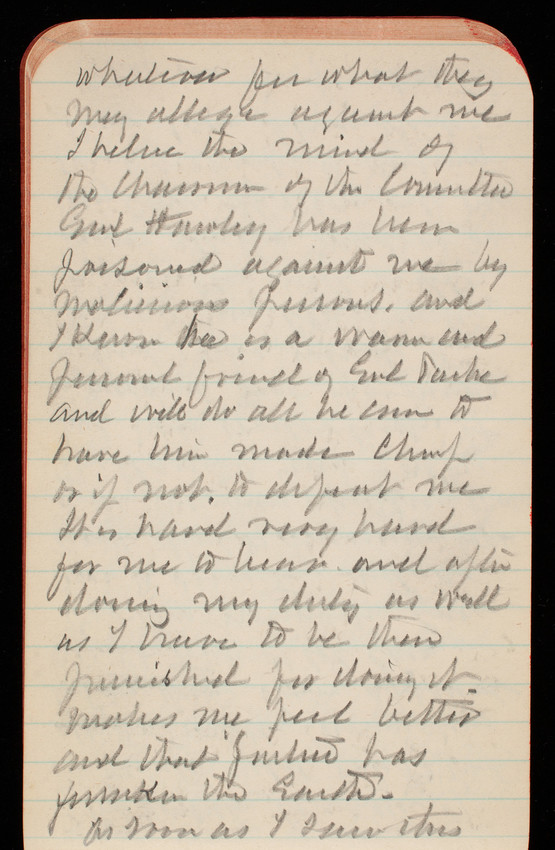 whatever for what they
may allege against me
I believe the mind of
the Chairman of the Committee
Genl Hawley has been
poisoned against me by
malicious persons. and
I know he is a warm and
personal friend of Genl Parke
and will do all he can to
have him made Chief
or if not, to defeat me
It is hard very hard
for me to bear and after
doing my duty as well
as I have to be thus
punished for doing it
makes me feel bitter
and that justice has
forsaken the Earth.
As soon as I saw the